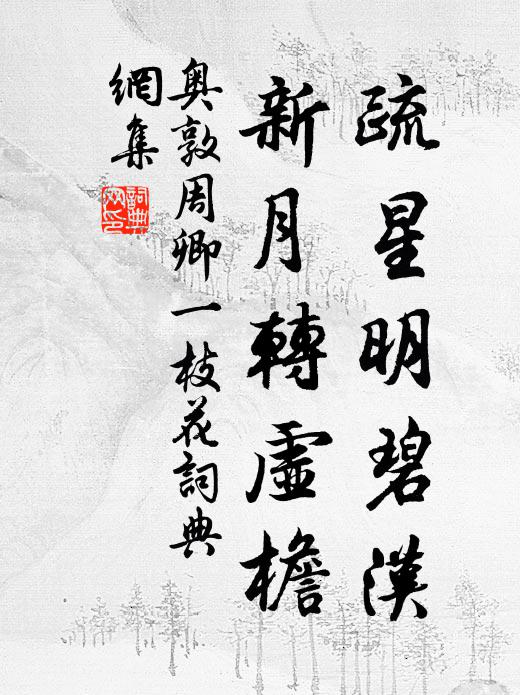 疏星明碧漢
新月轉虛檐
奥敦周卿一枝花詞典
網集
詞典網印